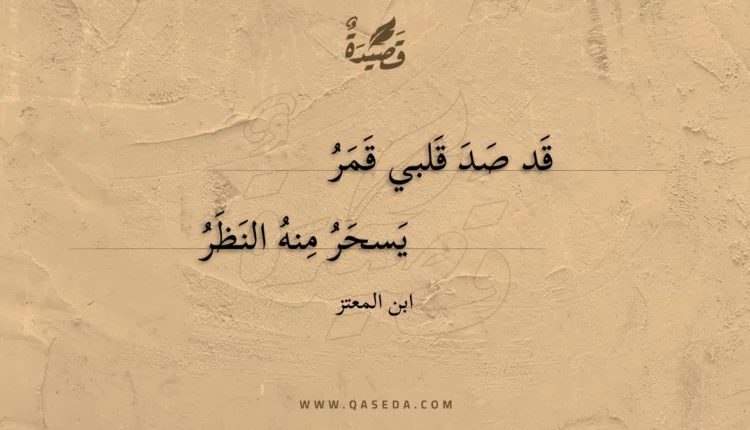 قَصِيدَةٌ
قَد صَدَ قَلبي قَمَرُ
يَسحَرُ مِنهُ النَظَرُ
ابن المعتز
WWW.QASEDA.COM